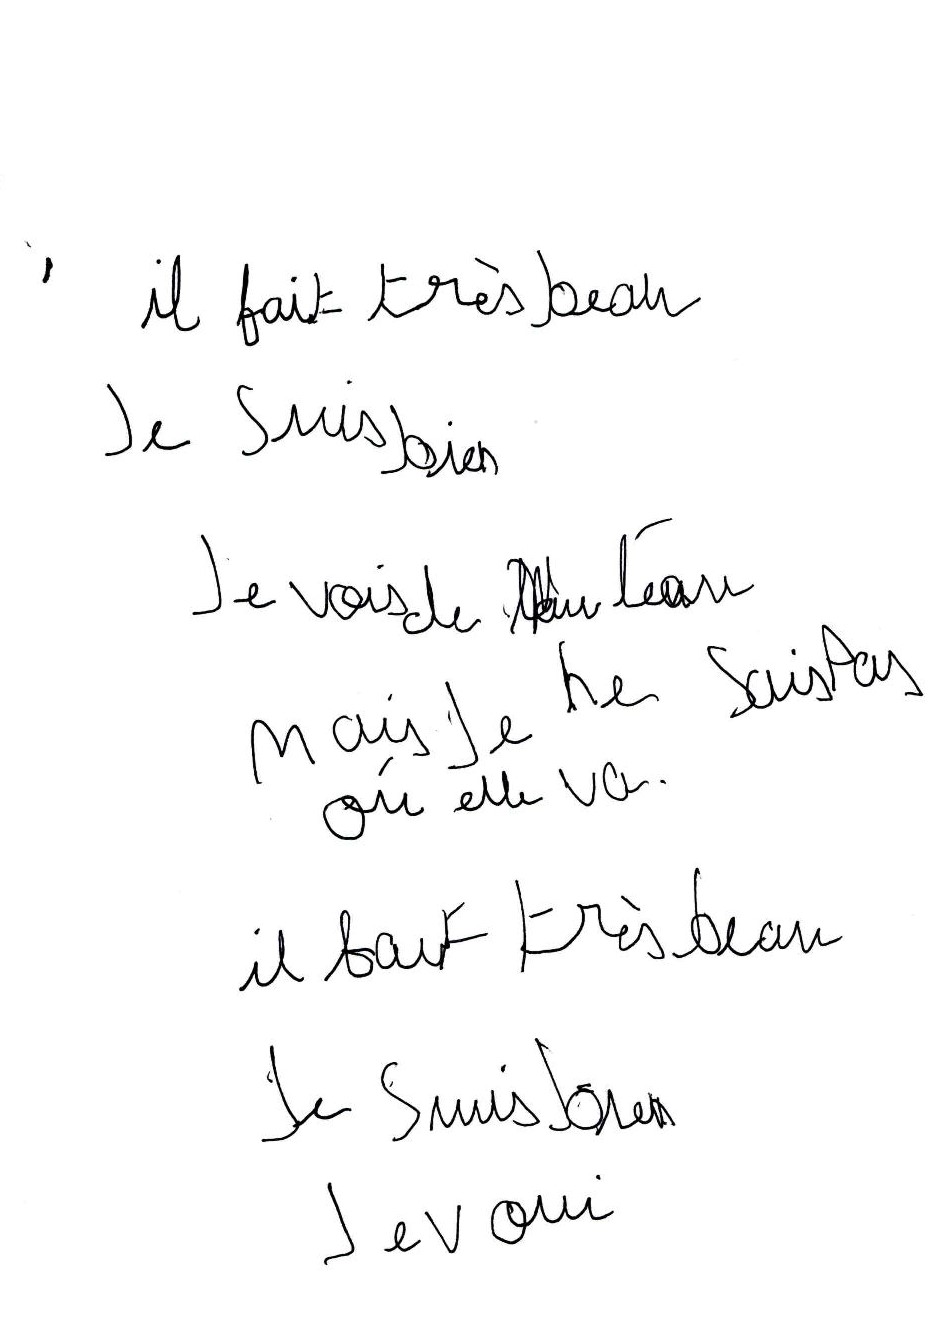 il fait très beau
Je suis bien
Je vois de l'eau
mais Je ne sais Pas
où elle va.
il fait très beau
Je suis bien
Je v oui